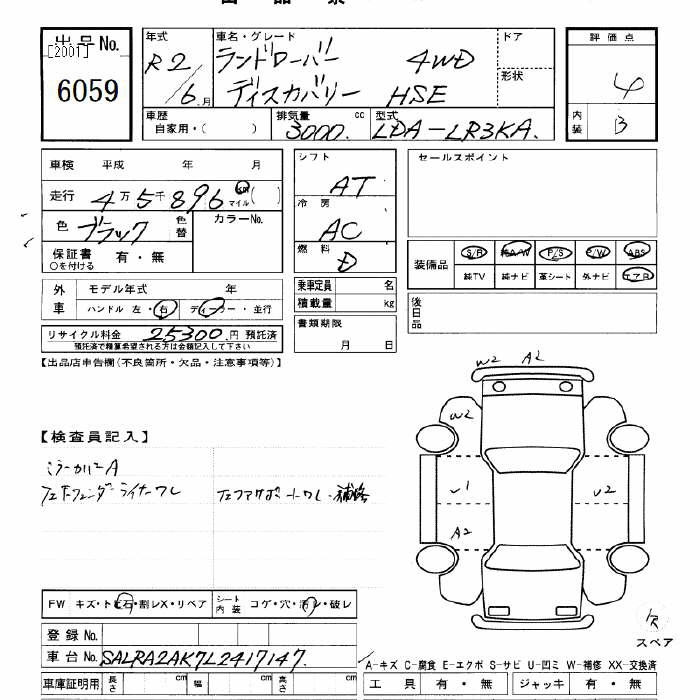 出品票
出品No.
[2001]
6059
年式
R2/6月
車名・グレード
ランドローバー 4WD
ディスカバリー HSE
ドア
形状
評価点
4
内装
B
車歴
自家用・( )
排気量
3000. cc
型式
LDA-LR3KA.
車検 平成 年 月
走行 4万5千896 km マイル ( )
色 ブラック
色替
カラーNo.
保証書 有・無
○を付ける
外車
モデル年式 年
ハンドル 左・右
ディーラー・並行
リサイクル料金 25300.円 預託済
預託済で精算希望される方は金額記入して下さい
シフト
AT
冷房
AC
燃料
D
乗車定員 名
積載量 kg
書類期限
月 日
セールスポイント
装備品
S/R 純A/W P/S P/W ABS
純TV 純ナビ 革シート 外ナビ エアB
後日品
【出品店申告欄(不良箇所・欠品・注意事項等)】
W2 A2
W2
U2
A2
【検査員記入】
ミラーカバーA
フェンダーライナーワレ
補修
FW キズ・ト ビ石・割レX・リペア
シート内装 コゲ・穴・汚レ・破レ
登録No.
車台No. SALRA2AK7L2417147.
欠
スペア
A-キズ C-腐食 E-エクボ S-サビ U-凹ミ W-補修 XX-交換済
車庫証明用 長さ cm 幅 cm 高さ cm
工具 有・無 ジャッキ 有・無